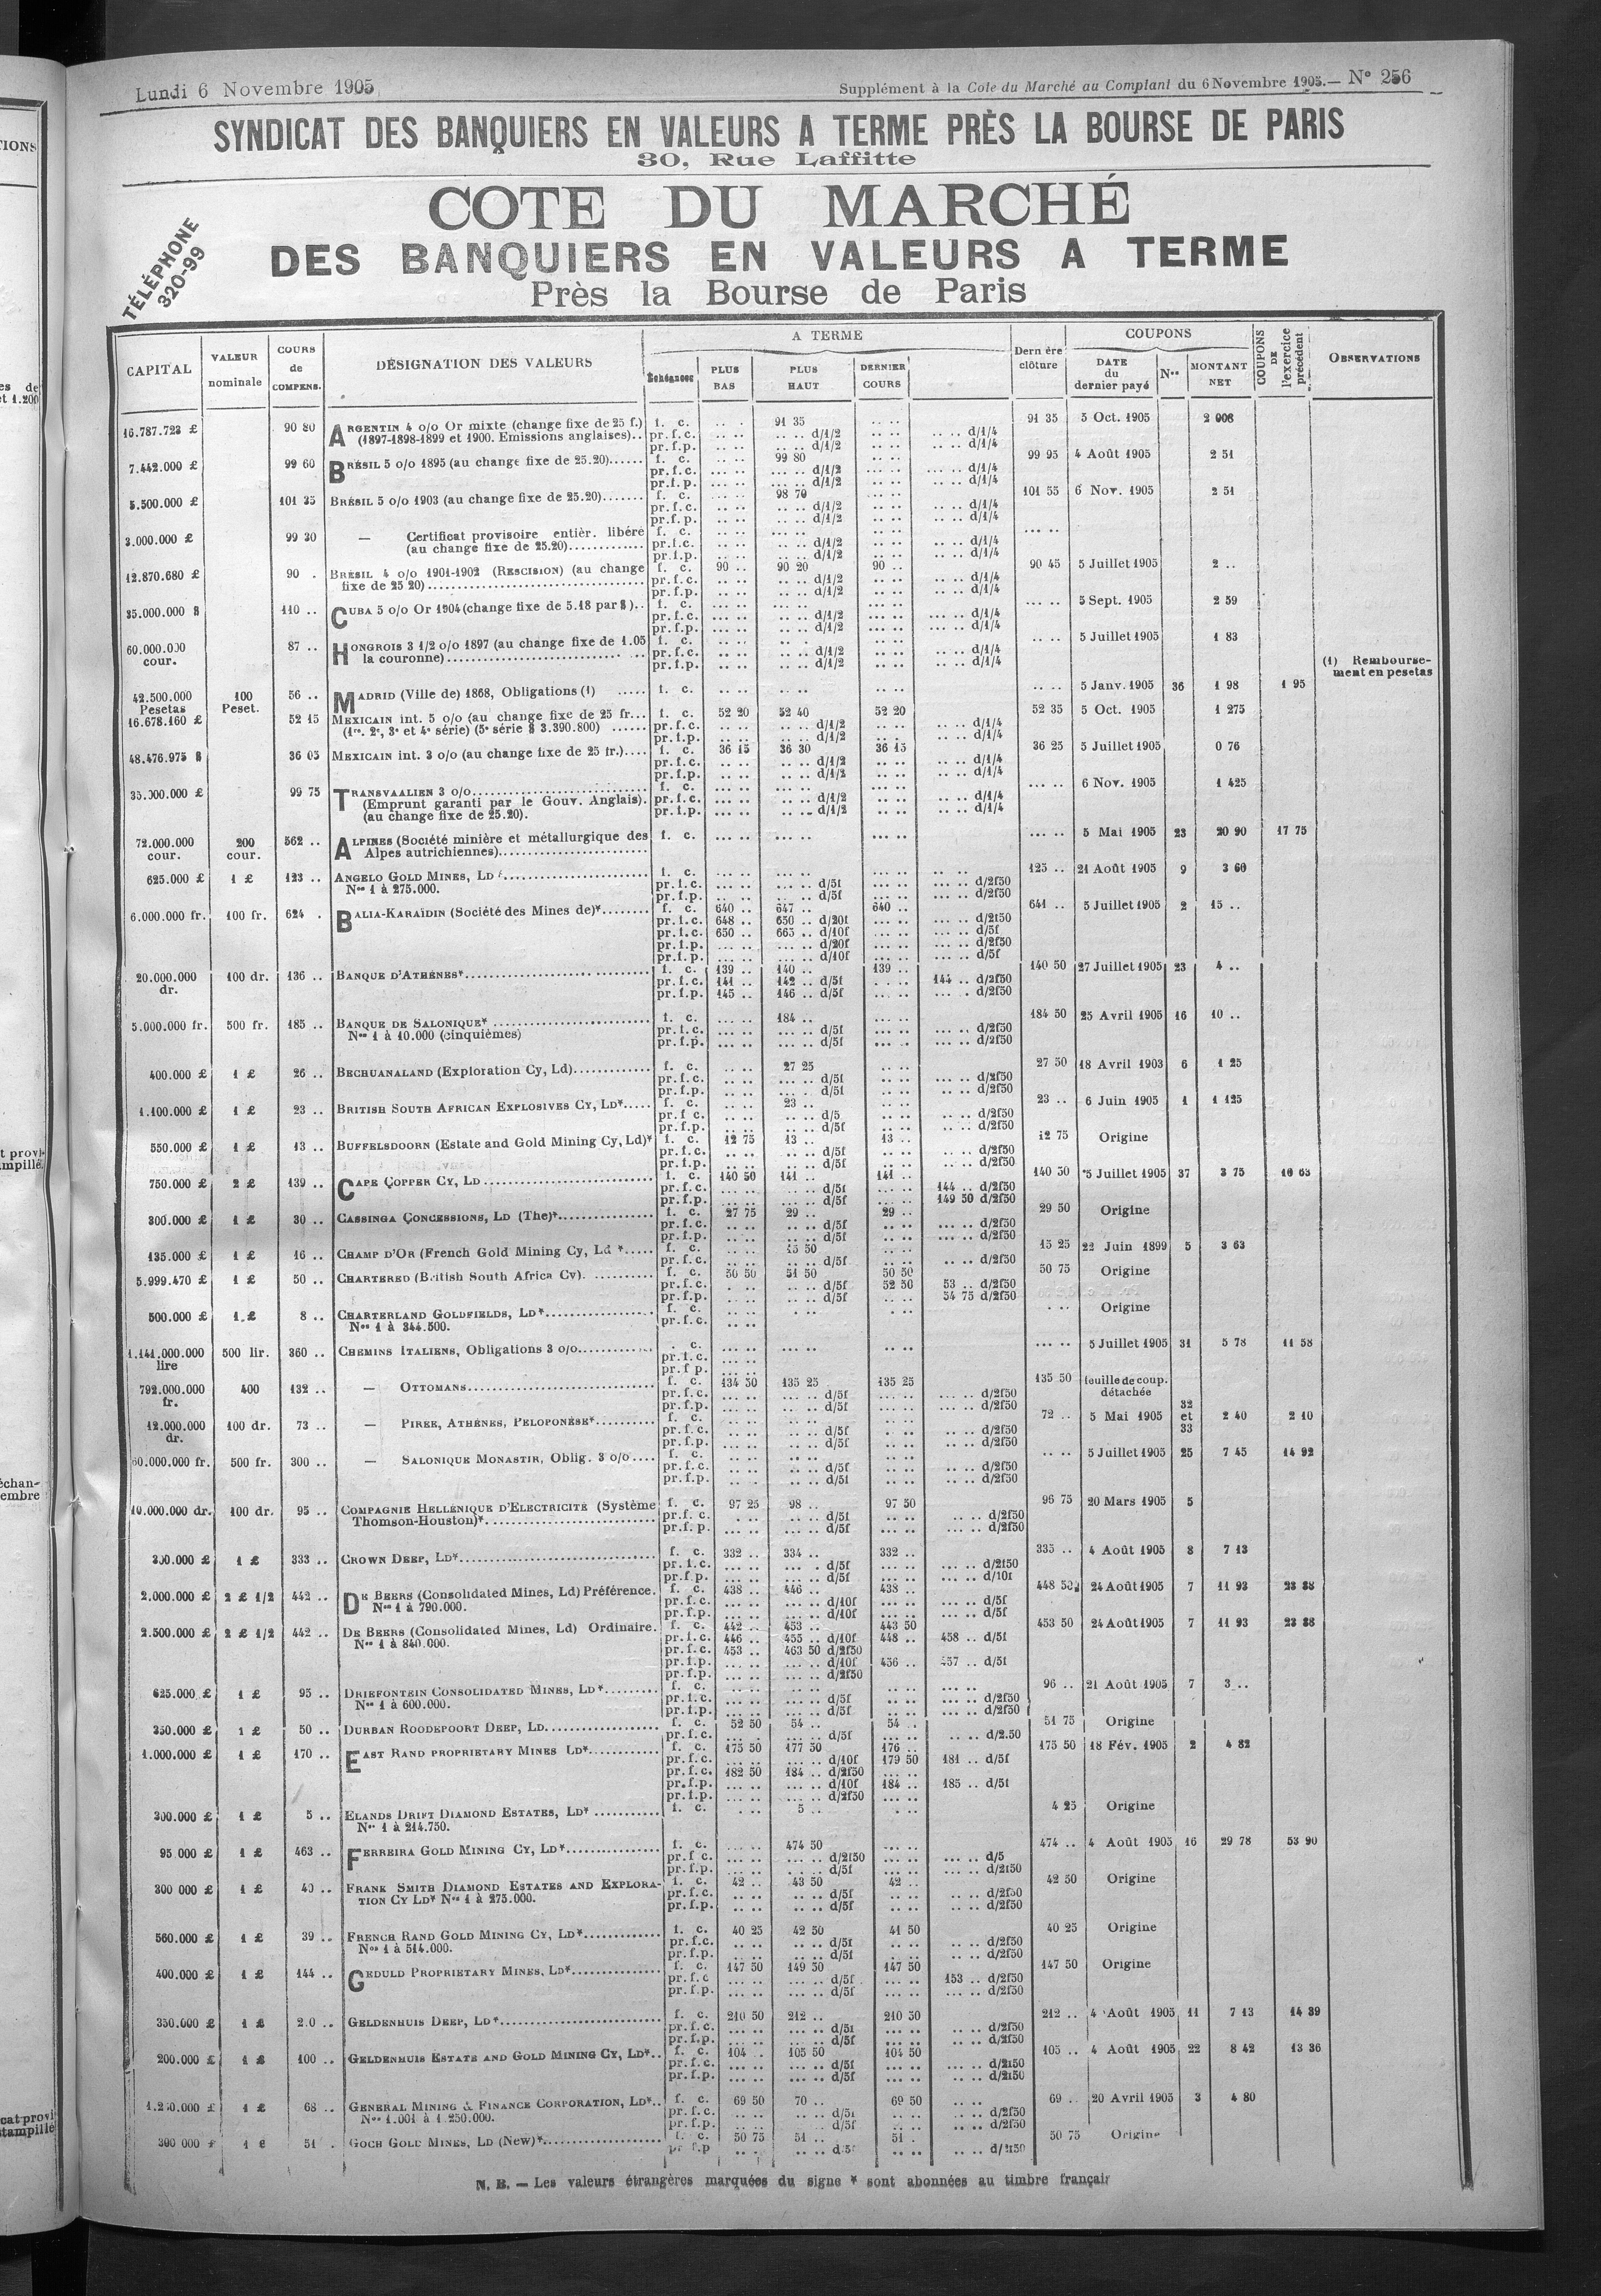 Lundi 6 Novembre 1905
Supplément à la Cote du Marché au Comptant du 6 Novembre 1905.— N° 256
SYNDICAT DES BANQUIERS EN VALEURS A TERME PRÈS LA BOURSE DE PARIS
30, Rue Laffitte
TÉLÉPHONE
320-99
COTE DU MARCHÉ
DES BANQUIERS EN VALEURS A TERME
Près la Bourse de Paris
CAPITAL | VALEUR nominale | COURS de COMPENS. | DÉSIGNATION DES VALEURS | A TERME | Échéances | PLUS BAS | PLUS HAUT | DERNIER COURS | Dern ère clôture | COUPONS | DATE du dernier payé | Nos | MONTANT NET | COUPONS DE l'exercice précédent | OBSERVATIONS
16.787.723 £ 90 80 ARGENTIN 4 o/o Or mixte (change fixe de 25 f.) f. c. .. . 91 35 .. .. 91 35 5 Oct. 1905 2 006
(1897-1898-1899 et 1900. Emissions anglaises).. pr.f.c. .. .. .. .. d/1/2 .. .. .. .. d/1/4
pr.f.p. .. .. d/1/2 .. .. .. .. d/1/4
7.442.000 £ 99 60 BRÉSIL 5 o/o 1895 (au change fixe de 25.20)...... f. c. 99 80 99 95 4 Août 1905 2 51
pr.f.c. d/1/2 d/1/4
pr.f.p. d/1/2 d/1/4
5.500.000 £ 101 35 BRÉSIL 5 o/o 1903 (au change fixe de 25.20)....... f. c. 98 70 101 55 6 Nov. 1905 2 51
pr.f.c. d/1/2 d/1/4
pr.f.p. d/1/2 d/1/4
3.000.000 £ 99 30 — Certificat provisoire entièr. libéré f. c.
(au change fixe de 25.20)............. pr.f.c. d/1/2 d/1/4
pr.f.p. d/1/2 d/1/4
12.870.680 £ 90 . BRÉSIL 4 o/o 1901-1902 (RESCISION) (au change f. c. 90 .. 90 20 90 .. 90 45 5 Juillet 1905 2 ..
fixe de 25 20)............ pr.f.c. d/1/2 d/1/4
pr.f.p. d/1/2 d/1/4
35.000.000 $ 110 .. CUBA 5 o/o Or 1904 (change fixe de 5.18 par $).. f. c. 5 Sept. 1905 2 59
pr.f.c. d/1/2 d/1/4
pr.f.p. d/1/2 d/1/4
60.000.000 cour. 87 .. HONGROIS 3 1/2 o/o 1897 (au change fixe de 1.05 f. c. 5 Juillet 1905 1 83
la couronne)............ pr.f.c. d/1/2 d/1/4
pr.f.p. d/1/2 d/1/4
(1) Rembourse-
ment en pesetas
42.500.000 Pesetas 100 Peset. 56 .. MADRID (Ville de) 1868, Obligations (1) ..... f. c. 5 Janv. 1905 36 1 98 1 95
16.678.160 £ 52 15 MEXICAIN int. 5 o/o (au change fixe de 25 fr... f. c. 52 20 52 40 52 20 52 35 5 Oct. 1905 1 275
(1re. 2e, 3e et 4e série) (5e série $ 3.390.800) ...... pr.f.c. d/1/2 d/1/4
pr.f.p. d/1/2 d/1/4
48.476.975 $ 36 05 MEXICAIN int. 3 o/o (au change fixe de 25 fr.).... f. c. 36 15 36 30 36 15 36 25 5 Juillet 1905 0 76
pr.f.c. d/1/2 d/1/4
pr.f.p. d/1/2 d/1/4
35.000.000 £ 99 75 TRANSVAALIEN 3 o/o............ f. c. 6 Nov. 1905 1 425
(Emprunt garanti par le Gouv. Anglais). pr.f.c. d/1/2 d/1/4
(au change fixe de 25.20). pr.f.p. d/1/2 d/1/4
72.000.000 cour. 200 cour. 562 .. ALPINES (Société minière et métallurgique des f. c. 5 Mai 1905 23 20 90 17 75
Alpes autrichiennes)............
625.000 £ 1 £ 123 .. ANGELO GOLD MINES, LD............ f. c. 125 .. 21 Août 1905 9 3 60
Nos 1 à 275.000. pr.f.c. d/5f d/2f50
pr.f.p. d/5f d/2f50
6.000.000 fr. 100 fr. 624 . BALIA-KARAÏDIN (Société des Mines de)*........ f. c. 640 .. 647 .. 640 .. 641 .. 5 Juillet 1905 2 15 ..
pr.f.c. 648 .. 650 .. d/20f d/2f50
pr.f.c. 650 .. 665 .. d/10f d/5f
pr.f.p. d/20f d/2f50
pr.f.p. d/10f d/5f
20.000.000 dr. 100 dr. 136 .. BANQUE D'ATHÈNES*............ f. c. 139 .. 140 .. 139 .. 140 50 27 Juillet 1905 23 4 ..
pr.f.c. 141 .. 142 .. d/5f 144 .. d/2f50
pr.f.p. 145 .. 146 .. d/5f d/2f50
5.000.000 fr. 500 fr. 185 .. BANQUE DE SALONIQUE*............ f. c. 184 .. 184 50 25 Avril 1905 16 10 ..
Nos 1 à 10.000 (cinquièmes) pr.f.c. d/5f d/2f50
pr.f.p. d/5f d/2f50
400.000 £ 1 £ 26 .. BECHUANALAND (Exploration Cy, Ld)............ f. c. 27 25 27 50 18 Avril 1903 6 1 25
pr.f.c. d/5f d/2f50
pr.f.p. d/5f d/2f50
1.100.000 £ 1 £ 23 .. BRITISH SOUTH AFRICAN EXPLOSIVES CY, LD*..... f. c. 23 .. 23 .. 6 Juin 1905 1 1 125
pr.f c. d/5 d/2f50
pr.f.p. d/5f d/2f50
550.000 £ 1 £ 13 .. BUFFELSDOORN (Estate and Gold Mining Cy, Ld)* f. c. 12 75 13 .. 13 .. 12 75 Origine
pr.f.c. d/5f d/2f50
pr.f.p. d/5f d/2f50
750.000 £ 2 £ 139 .. CAPE COPPER CY, LD............ f. c. 140 50 141 .. 141 .. 140 50 5 Juillet 1905 37 3 75 10 63
pr.f.c. d/5f 144 .. d/2f50
pr.f.p. d/5f 149 50 d/2f50
300.000 £ 1 £ 30 .. CASSINGA CONCESSIONS, LD (The)*............ f. c. 27 75 29 .. 29 .. 29 50 Origine
pr.f.c. d/5f d/2f50
pr.f.p. d/5f d/2f50
135.000 £ 1 £ 16 .. CHAMP D'OR (French Gold Mining Cy, Ld *..... f. c. 15 50 15 25 22 Juin 1899 5 3 63
pr.f.c. d/5f d/2f50
5.999.470 £ 1 £ 50 .. CHARTERED (British South Africa Cy). .......... f. c. 50 50 51 50 50 50 50 75 Origine
pr.f.c. d/5f 52 50 53 .. d/2f50
pr.f.p. d/5f 54 75 d/2f50
500.000 £ 1 £ 8 .. CHARTERLAND GOLDFIELDS, LD*............ f. c. Origine
Nos 1 à 344.500. pr.f.c.
1.141.000.000 lire 500 lir. 360 .. CHEMINS ITALIENS, Obligations 3 o/o............ . c. 5 Juillet 1905 31 5 78 11 58
pr.f.c.
pr.f p.
792.000.000 fr. 400 132 .. — OTTOMANS............ f. c. 134 50 135 25 135 25 135 50 feuille de coup. détachée
pr.f.c. d/5f d/2f50
pr.f.p. d/5f d/2f50
12.000.000 dr. 100 dr. 73 .. — PIREE, ATHÈNES, PELOPONÈSE*.......... f. c. 72 .. 5 Mai 1905 32 et 33 2 40 2 10
pr.f.c. d/5f d/2f50
pr.f.p. d/5f d/2f50
60.000.000 fr. 500 fr. 300 .. — SALONIQUE MONASTIR, Oblig. 3 o/o.... f. c. 5 Juillet 1905 25 7 45 14 92
pr.f.c. d/5f d/2f50
pr.f.p. d/5f d/2f50
10.000.000 dr. 100 dr. 95 .. COMPAGNIE HELLÉNIQUE D'ELECTRICITÉ (Système f. c. 97 25 98 .. 97 50 96 75 20 Mars 1905 5
Thomson-Houston)*............ pr.f. c. d/5f d/2f50
pr.f. p. d/5f d/2f50
300.000 £ 1 £ 333 .. CROWN DEEP, LD*............ f. c. 332 .. 334 .. 332 .. 335 .. 4 Août 1905 8 7 13
pr.f.c. d/5f d/2f50
pr.f.p. d/5f d/10f
2.000.000 £ 2 £ 1/2 442 .. DE BEERS (Consolidated Mines, Ld) Préférence. f. c. 438 .. 446 .. 438 .. 448 50 24 Août 1905 7 11 93 23 88
Nos 1 à 790.000. pr.f.c. d/10f d/5f
pr.f.p. d/10f d/5f
2.500.000 £ 2 £ 1/2 442 .. DE BEERS (Consolidated Mines, Ld) Ordinaire. f. c. 442 .. 453 .. 443 50 453 50 24 Août 1905 7 11 93 23 88
Nos 1 à 840.000. pr.f.c. 446 .. 455 .. d/10f 448 .. 458 .. d/5f
pr.f.c. 453 .. 463 50 d/2f50
pr.f.p. d/10f 456 .. 457 .. d/5f
pr.f.p. d/2f50
625.000 £ 1 £ 95 .. DRIEFONTEIN CONSOLIDATED MINES, LD*......... f. c. 96 .. 21 Août 1905 7 3 ..
Nos 1 à 600.000. pr.f.c. d/5f d/2f50
pr.f.p. d/5f d/2f50
350.000 £ 1 £ 50 .. DURBAN ROODEPOORT DEEP, LD............ f. c. 52 50 54 .. 54 .. 51 75 Origine
pr.f.c. d/5f d/2.50
1.000.000 £ 1 £ 170 .. EAST RAND PROPRIETARY MINES LD*............ f. c. 175 50 177 50 176 .. 175 50 18 Fév. 1905 2 4 82
pr.f.c. d/10f 179 50 181 .. d/5f
pr.f.c. 182 50 184 .. d/2f50
pr.f.p. d/10f 184 .. 185 .. d/5f
pr.f.p. d/2f50
300.000 £ 1 £ 5 .. ELANDS DRIFT DIAMOND ESTATES, LD*........... f. c. 5 .. 4 25 Origine
Nos 1 à 214.750.
95 000 £ 1 £ 463 .. FERREIRA GOLD MINING CY, LD*................ f. c. 474 50 474 .. 4 Août 1905 16 29 78 53 90
pr.f c. d/2f50 d/5
pr.f.p. d/5f d/2f50
300 000 £ 1 £ 40 .. FRANK SMITH DIAMOND ESTATES AND EXPLORA- f. c. 42 .. 43 50 42 .. 42 50 Origine
TION CY LD* Nos 1 à 275.000. pr.f.c. d/5f d/2f50
pr.f.p. d/5f d/2f50
560.000 £ 1 £ 39 .. FRENCH RAND GOLD MINING CY, LD*............ f. c. 40 25 42 50 41 50 40 25 Origine
Nos 1 à 514.000. pr.f.c. d/5f d/2f50
pr.f.p. d/5f d/2f50
400.000 £ 1 £ 144 .. GEDULD PROPRIETARY MINES, LD*............ f. c. 147 50 149 50 147 50 147 50 Origine
pr.f.c d/5f 153 .. d/2f50
pr.f.p. d/5f d/2f50
350.000 £ 1 £ 2.0 .. GELDENHUIS DEEP, LD*............ f. c. 210 50 212 .. 210 50 212 .. 4 Août 1905 11 7 13 14 39
pr.f.c. d/5f d/2f50
pr.f.p. d/5f d/2f50
200.000 £ 1 £ 100 .. GELDENHUIS ESTATE AND GOLD MINING CY, LD*.. f. c. 104 .. 105 50 104 50 105 .. 4 Août 1905 22 8 42 13 36
pr.f.c. d/5f d/2f50
pr.f.p. d/5f d/2f50
1.250.000 £ 1 £ 68 .. GENERAL MINING & FINANCE CORPORATION, LD*.. f. c. 69 50 70 .. 69 50 69 .. 20 Avril 1905 3 4 80
Nos 1.001 à 1.250.000. pr.f.c. d/5f d/2f50
pr.f.p. d/5f d/2f50
300 000 £ 1 £ 51 . GOCH GOLD MINES, LD (New)*............ f. c. 50 75 51 .. 51 . 50 75 Origine
pr f.p d 5f d/2f50
N. B. — Les valeurs étrangères marquées du signe * sont abonnées au timbre français